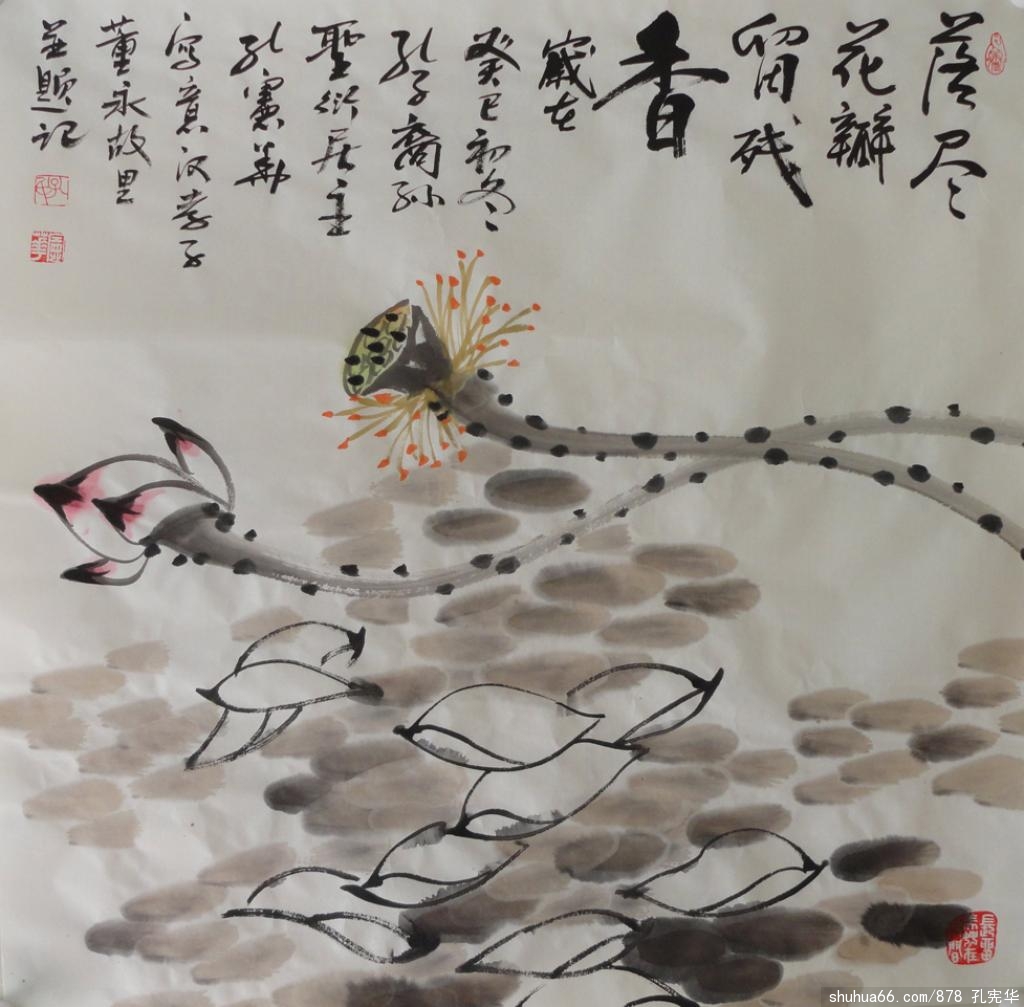 落尽
花瓣
留残
香
歲在
癸巳初冬
孔子裔孙
聖衍居主
孔憲華
寫意汉孝子
董永故里
並题记
shuhua66.com/878 孔宪华